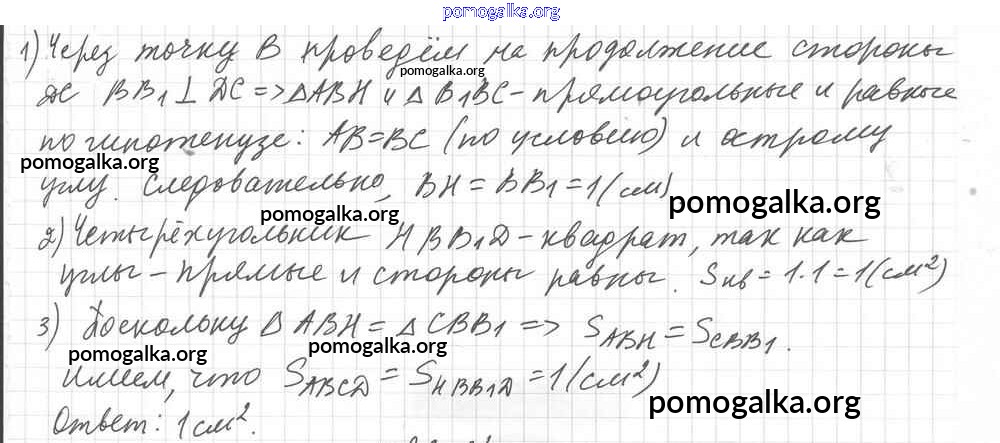 pomogalka.org
1) Через точку B проведём на продолжение стороны
pomogalka.org
DC BB1 ⊥ DC => ΔABH и ΔB1BC - прямоугольные и равные
по гипотенузе: AB=BC (по условию) и острому
pomogalka.org
углу. Следовательно, BH = BB1 = 1(см)
pomogalka.org
pomogalka.org
2) Четырёхугольник HBB1D - квадрат, так как
углы - прямые и стороны равны. Sкв = 1·1 = 1(см²)
3) Поскольку Δ ABH = Δ CBB1 => SABH = SCBB1.
pomogalka.org
pomogalka.org
Имеем, что SABCD = SHBB1D = 1(см²)
pomogalka.org
Ответ: 1см².